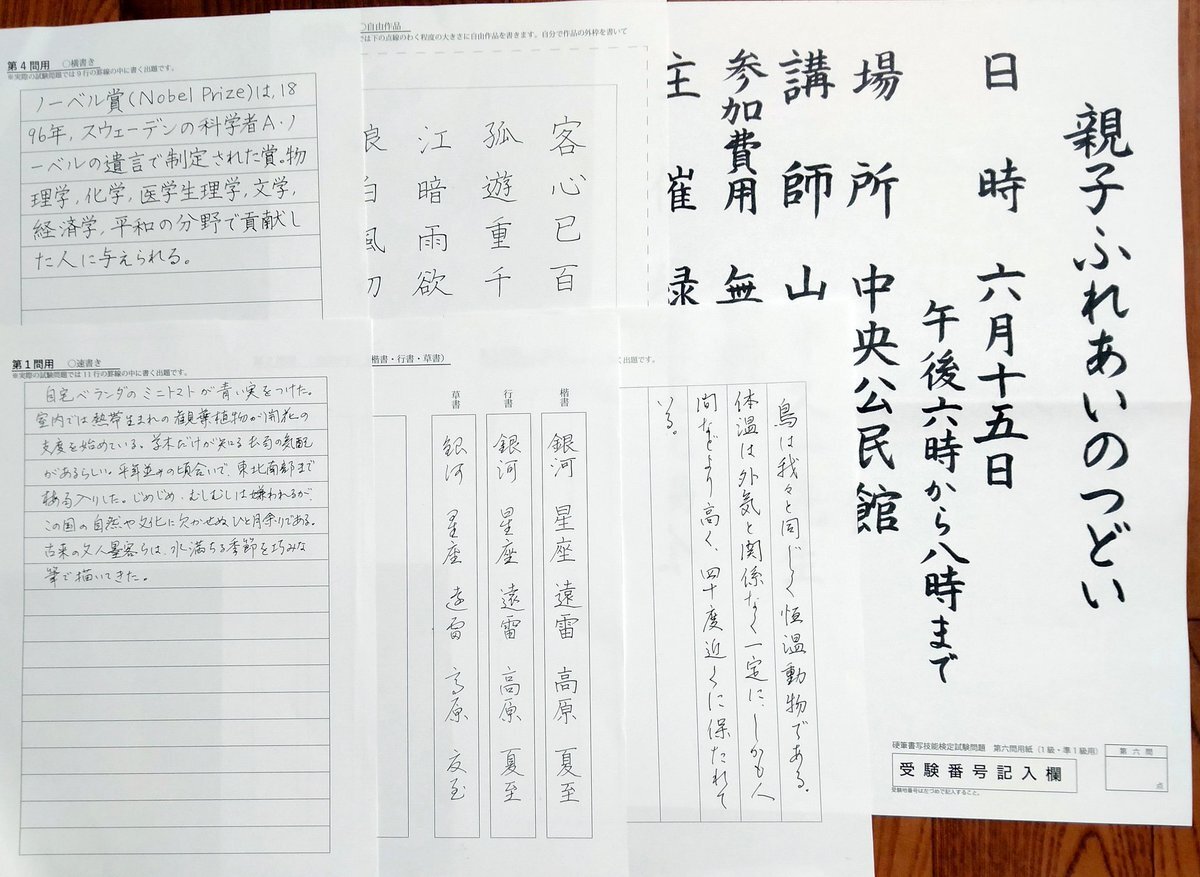 第4問用 ○横書き
※実際の試験問題では9行の罫線の中に書く出題です。
ノーベル賞(Nobel Prize)は,18
96年,スウェーデンの科学者A・ノ
ーベルの遺言で制定された賞。物
理学,化学,医学生理学,文学,
経済学,平和の分野で貢献し
た人に与えられる。
○自由作品
では下の点線のわく程度の大きさに自由作品を書きます。自分で作品の外枠を書いて
客心已百
孤遊重千
江暗雨欲
浪白風初
親子ふれあいのつどい
日時 六月十五日
午後六時から八時まで
場所 中央公民館
講師 山
参加費用 無
主催 緑
硬筆書写技能検定試験問題 第六問用紙(1級・準1級用)
受験番号記入欄
受験地番号は左づめで記入すること。
第六問
点
第1問用 ○速書き
※実際の試験問題では11行の罫線の中に書く出題です。
自宅ベランダのミニトマトが青い実をつけた。
室内では熱帯生まれの観葉植物が開花の
支度を始めている。草木だけが知る去の気配
があるらしい。平年並みの頃合いで、東北南部まで
梅雨入りした。じめじめ、むしむしは嫌われるが、
この国の自然や文化に欠かせぬひと月余りである。
古来の文人墨客らは、水満ちる季節を巧みな
筆で描いてきた。
(楷書・行書・草書)
楷書
銀河 星座 遠雷 高原 夏至
行書
銀河 星座 遠雷 高原 夏至
草書
銀河 星座 遠雷 高原 夏至
く出題です。
鳥は我々と同じく恒温動物である。
体温は外気と関係なく一定に、しかも人
間などより高く、四十度近くに保たれて
いる。